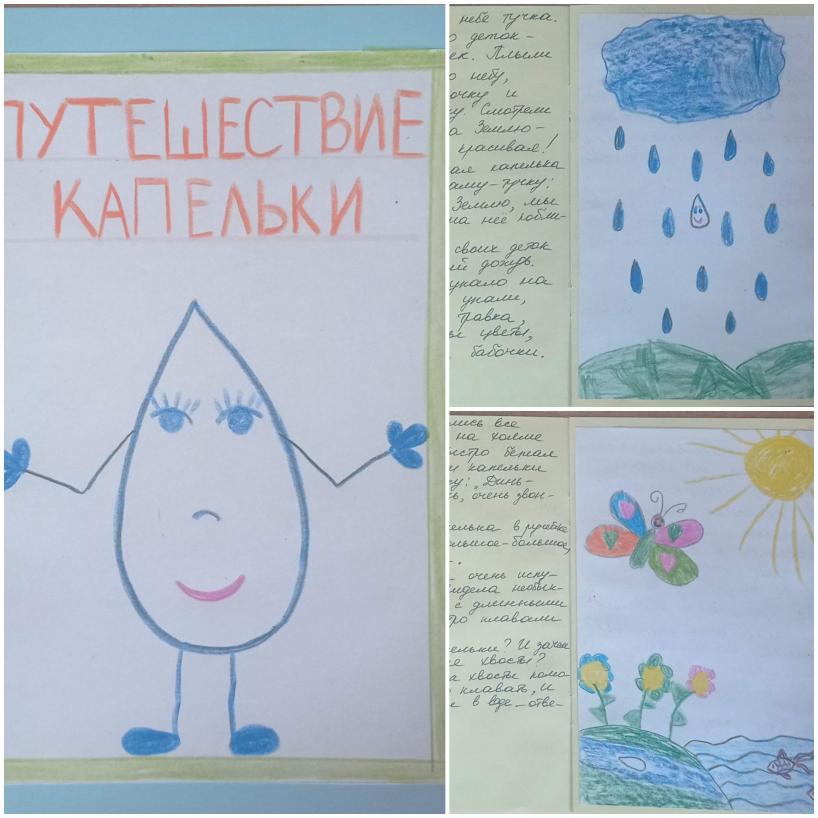 ПУТЕШЕСТВИЕ
КАПЕЛЬКИ
небе тучка.
деток-
ек. Плыли
о небу,
очку и
у. Смотрели
а Землю-
красивая!
ая капелька
аму-тучку:
Землю, мы
на неё побли-
своих деток
ий дождь.
упало на
упали,
травка,
цветы,
бабочки.
лись все
на холме
ыстро бежал
и капельки
у: „Динь-
ь, очень звон-
елька в ручейке
ольшое-большое,
очень испу-
идела необык-
с длинными
ро плавали
ельки? И зачем
е хвосты?
а хвосты помо-
плавать, и
и в воде_отве-